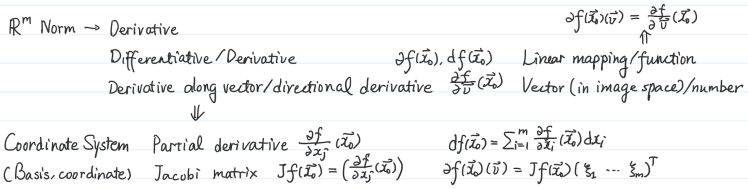 ∂f(x⃗₀)(v⃗) = ∂f/∂v⃗ (x⃗₀)
ℝᵐ Norm → Derivative
⇑
Differentiative/Derivative ∂f(x⃗₀), df(x⃗₀) Linear mapping/function
Derivative along vector/directional derivative ∂f/∂v⃗ (x⃗₀) Vector (in image space)/number
⇓
Coordinate System Partial derivative ∂f/∂xⱼ (x⃗₀) df(x⃗₀) = Σᵢ₌₁ᵐ ∂f/∂xᵢ (x⃗₀) dxᵢ
(Basis, coordinate) Jacobi matrix Jf(x⃗₀) = (∂f/∂xⱼ (x⃗₀)) ∂f(x⃗₀)(v⃗) = Jf(x⃗₀)(ξ₁ ⋯ ξₘ)ᵀ